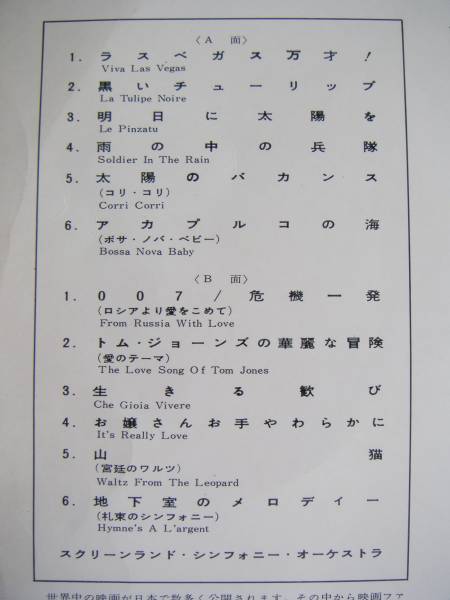 〈A 面〉
1. ラスベガス万才!
Viva Las Vegas
2. 黒いチューリップ
La Tulipe Noire
3. 明日に太陽を
Le Pinzatu
4. 雨の中の兵隊
Soldier In The Rain
5. 太陽のバカンス
(コリ・コリ)
Corri Corri
6. アカプルコの海
(ボサ・ノバ・ベビー)
Bossa Nova Baby
〈B 面〉
1. 007/危機一発
(ロシアより愛をこめて)
From Russia With Love
2. トム・ジョーンズの華麗な冒険
(愛のテーマ)
The Love Song Of Tom Jones
3. 生きる歓び
Che Gioia Vivere
4. お嬢さんお手やわらかに
It's Really Love
5. 山猫
(宮廷のワルツ)
Waltz From The Leopard
6. 地下室のメロディー
(札束のシンフォニー)
Hymne's A L'argent
スクリーンランド・シンフォニー・オーケストラ
世界中の映画が日本で数多く公開されます。その中から映画ファ